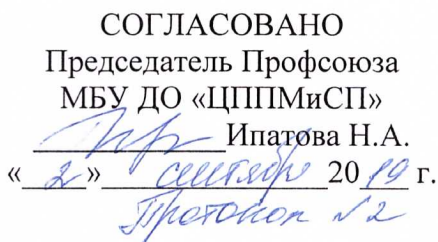 СОГЛАСОВАНО
Председатель Профсоюза
МБУ ДО «ЦППМиСП»
Ипатова Н.А.
«2» сентября 2019 г.
Протокол №2